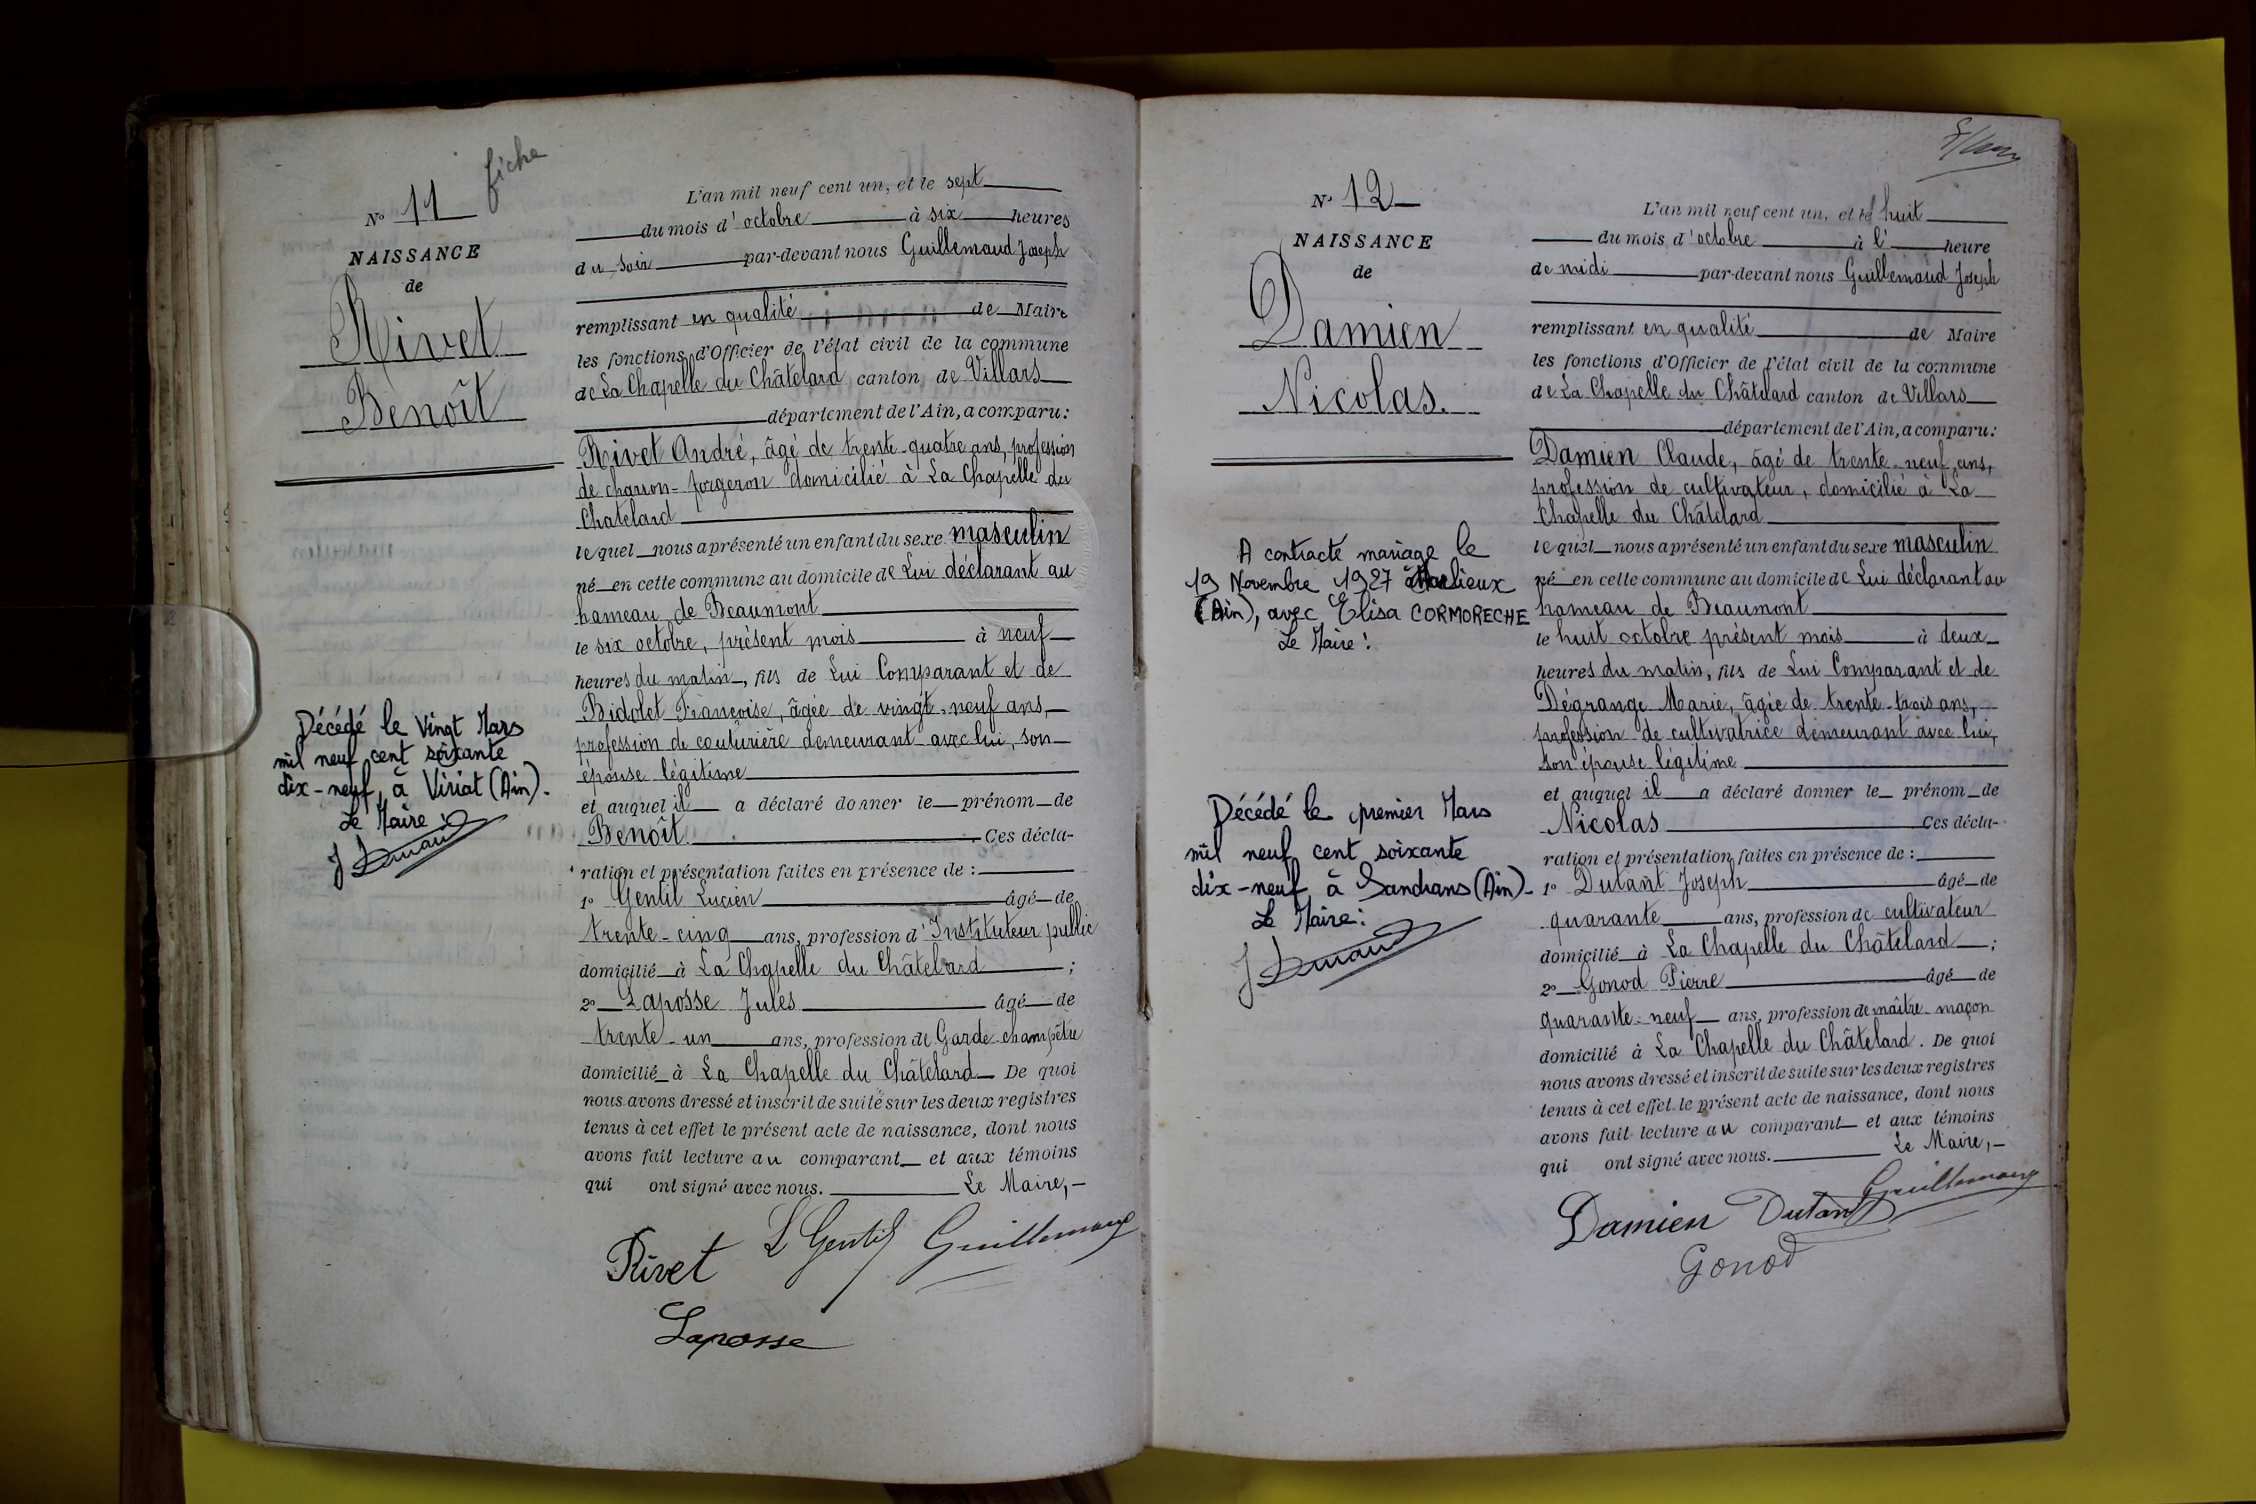 fiche
N° 11
NAISSANCE
de
Rivet
Benoît
Décédé le Vingt Mars
mil neuf cent soixante
dix-neuf, à Viriat (Ain).
Le Maire :
L'an mil neuf cent un, et le sept
du mois d'octobre à six heures
du soir par-devant nous Guillemaud Joseph
remplissant en qualité de Maire
les fonctions d'Officier de l'état civil de la commune
de La Chapelle du Châtelard canton de Villars
département de l'Ain, a comparu :
Rivet André, âgé de trente-quatre ans, profession
de charron-forgeron domicilié à La Chapelle du
Chatelard
lequel nous a présenté un enfant du sexe masculin
né en cette commune au domicile de Lui déclarant au
hameau de Beaumont
le six octobre, présent mois à neuf
heures du matin, fils de Lui Comparant et de
Bidolet Françoise, âgée de vingt-neuf ans,
profession de couturière demeurant avec lui, son
épouse légitime
et auquel il a déclaré donner le prénom de
Benoît. Ces décla-
ration et présentation faites en présence de :
1° Gentil Lucien âgé de
trente-cinq ans, profession d'Instituteur public
domicilié à La Chapelle du Châtelard ;
2° Laposse Jules âgé de
trente-un ans, profession de Garde-champêtre
domicilié à La Chapelle du Châtelard De quoi
nous avons dressé et inscrit de suite sur les deux registres
tenus à cet effet le présent acte de naissance, dont nous
avons fait lecture au comparant et aux témoins
qui ont signé avec nous. Le Maire,
Rivet L Gentil Guillemaud
Laposse
N° 12
NAISSANCE
de
Damien
Nicolas.
A contracté mariage le
19 Novembre 1927 à Marlieux
(Ain), avec Elisa CORMORECHE
Le Maire :
Décédé le premier Mars
mil neuf cent soixante
dix-neuf à Sandrans (Ain)
Le Maire :
L'an mil neuf cent un, et le huit
du mois d'octobre à l' heure
de midi par-devant nous Guillemaud Joseph
remplissant en qualité de Maire
les fonctions d'Officier de l'état civil de la commune
de La Chapelle du Châtelard canton de Villars
département de l'Ain, a comparu :
Damien Claude, âgé de trente-neuf ans,
profession de cultivateur, domicilié à La
Chapelle du Châtelard
lequel nous a présenté un enfant du sexe masculin
né en cette commune au domicile de Lui déclarant au
hameau de Beaumont
le huit octobre présent mois à deux
heures du matin, fils de Lui Comparant et de
Dégrange Marie, âgée de trente-trois ans,
profession de cultivatrice demeurant avec lui,
son épouse légitime
et auquel il a déclaré donner le prénom de
Nicolas Ces décla-
ration et présentation faites en présence de :
1° Dutant Joseph âgé de
quarante ans, profession de cultivateur
domicilié à La Chapelle du Châtelard ;
2° Gonod Pierre âgé de
quarante-neuf ans, profession de maître-maçon
domicilié à La Chapelle du Châtelard. De quoi
nous avons dressé et inscrit de suite sur les deux registres
tenus à cet effet le présent acte de naissance, dont nous
avons fait lecture au comparant et aux témoins
qui ont signé avec nous. Le Maire,
Guillemaud
Damien Dutant
Gonod